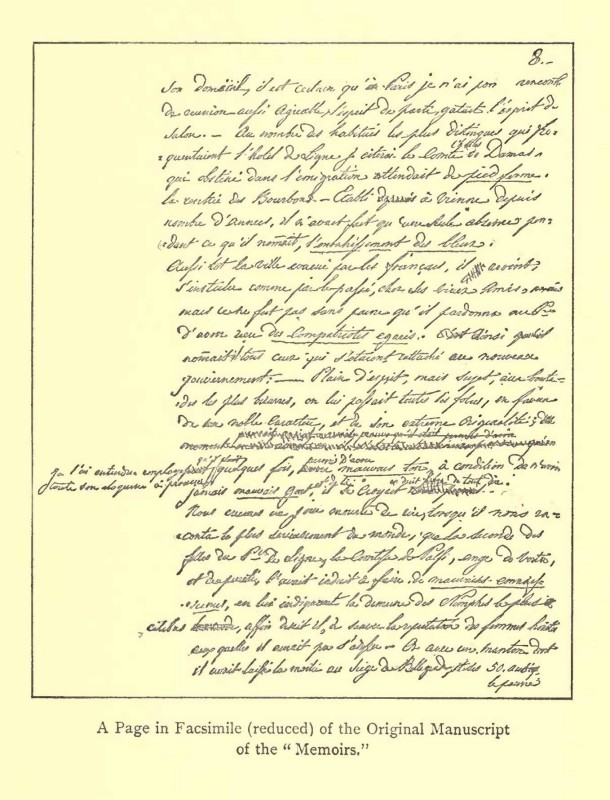 8.-
son domicile, il est certain qu'en Paris je n'ai pas rencontré
de reunion aussi agréable, l'esprit de parti, gâtant l'esprit de
salon. - Au nombre des habitués les plus distingués qui fré-
quentaient l'hotel de Ligne je citerai le Comte Charles de Damas
qui obstiné dans l'émigration attendait de pied ferme
la rentrée des Bourbons. - Etabli à Vienne depuis
nombre d'années, il n'avait fait qu'une seule absence pen-
dant ce qu'il nomait, l'envahissement des bleus.
Aussitot la ville évacuée par les français, il revint,
s'installa comme par le passé, chez ses vieux amis
mais ce ne fut pas sans peine qu'il pardonna au Pce
d'avoir reçu des Compatriotes égarés. C'est ainsi qu'il
nomait tous ceux qui s'étaient rattaché au nouveau
gouvernement. - Plein d'esprit, mais sujet aux boutades
les plus bizarres, on lui passait toutes ses folies, en faveur
de son noble caractère, et de son extreme originalité;
je l'ai entendu employer quelques fois, mauvais ton, à condition de n'avoir
toute son eloquence à prouver
jamais mauvais gout,
Nous eumes un jour envie de rire, lorsqu'il nous ra-
conta le plus sérieusement du monde, que la seconde des
filles du Pce de Ligne, la Comtesse de Palfi, ange de bonté,
et de pureté, l'avait induit à faire de mauvaises connais-
sances, en lui indiquant la demeure des Nymphes les plus
célèbres, affin disait il, de sauver la reputation de femmes
auxquelles il n'avait pas - Or avec un menton dont
il avait laissé la moitié au siege de Belgrade, et ses 50. années
A Page in Facsimile (reduced) of the Original Manuscript
of the "Memoirs."